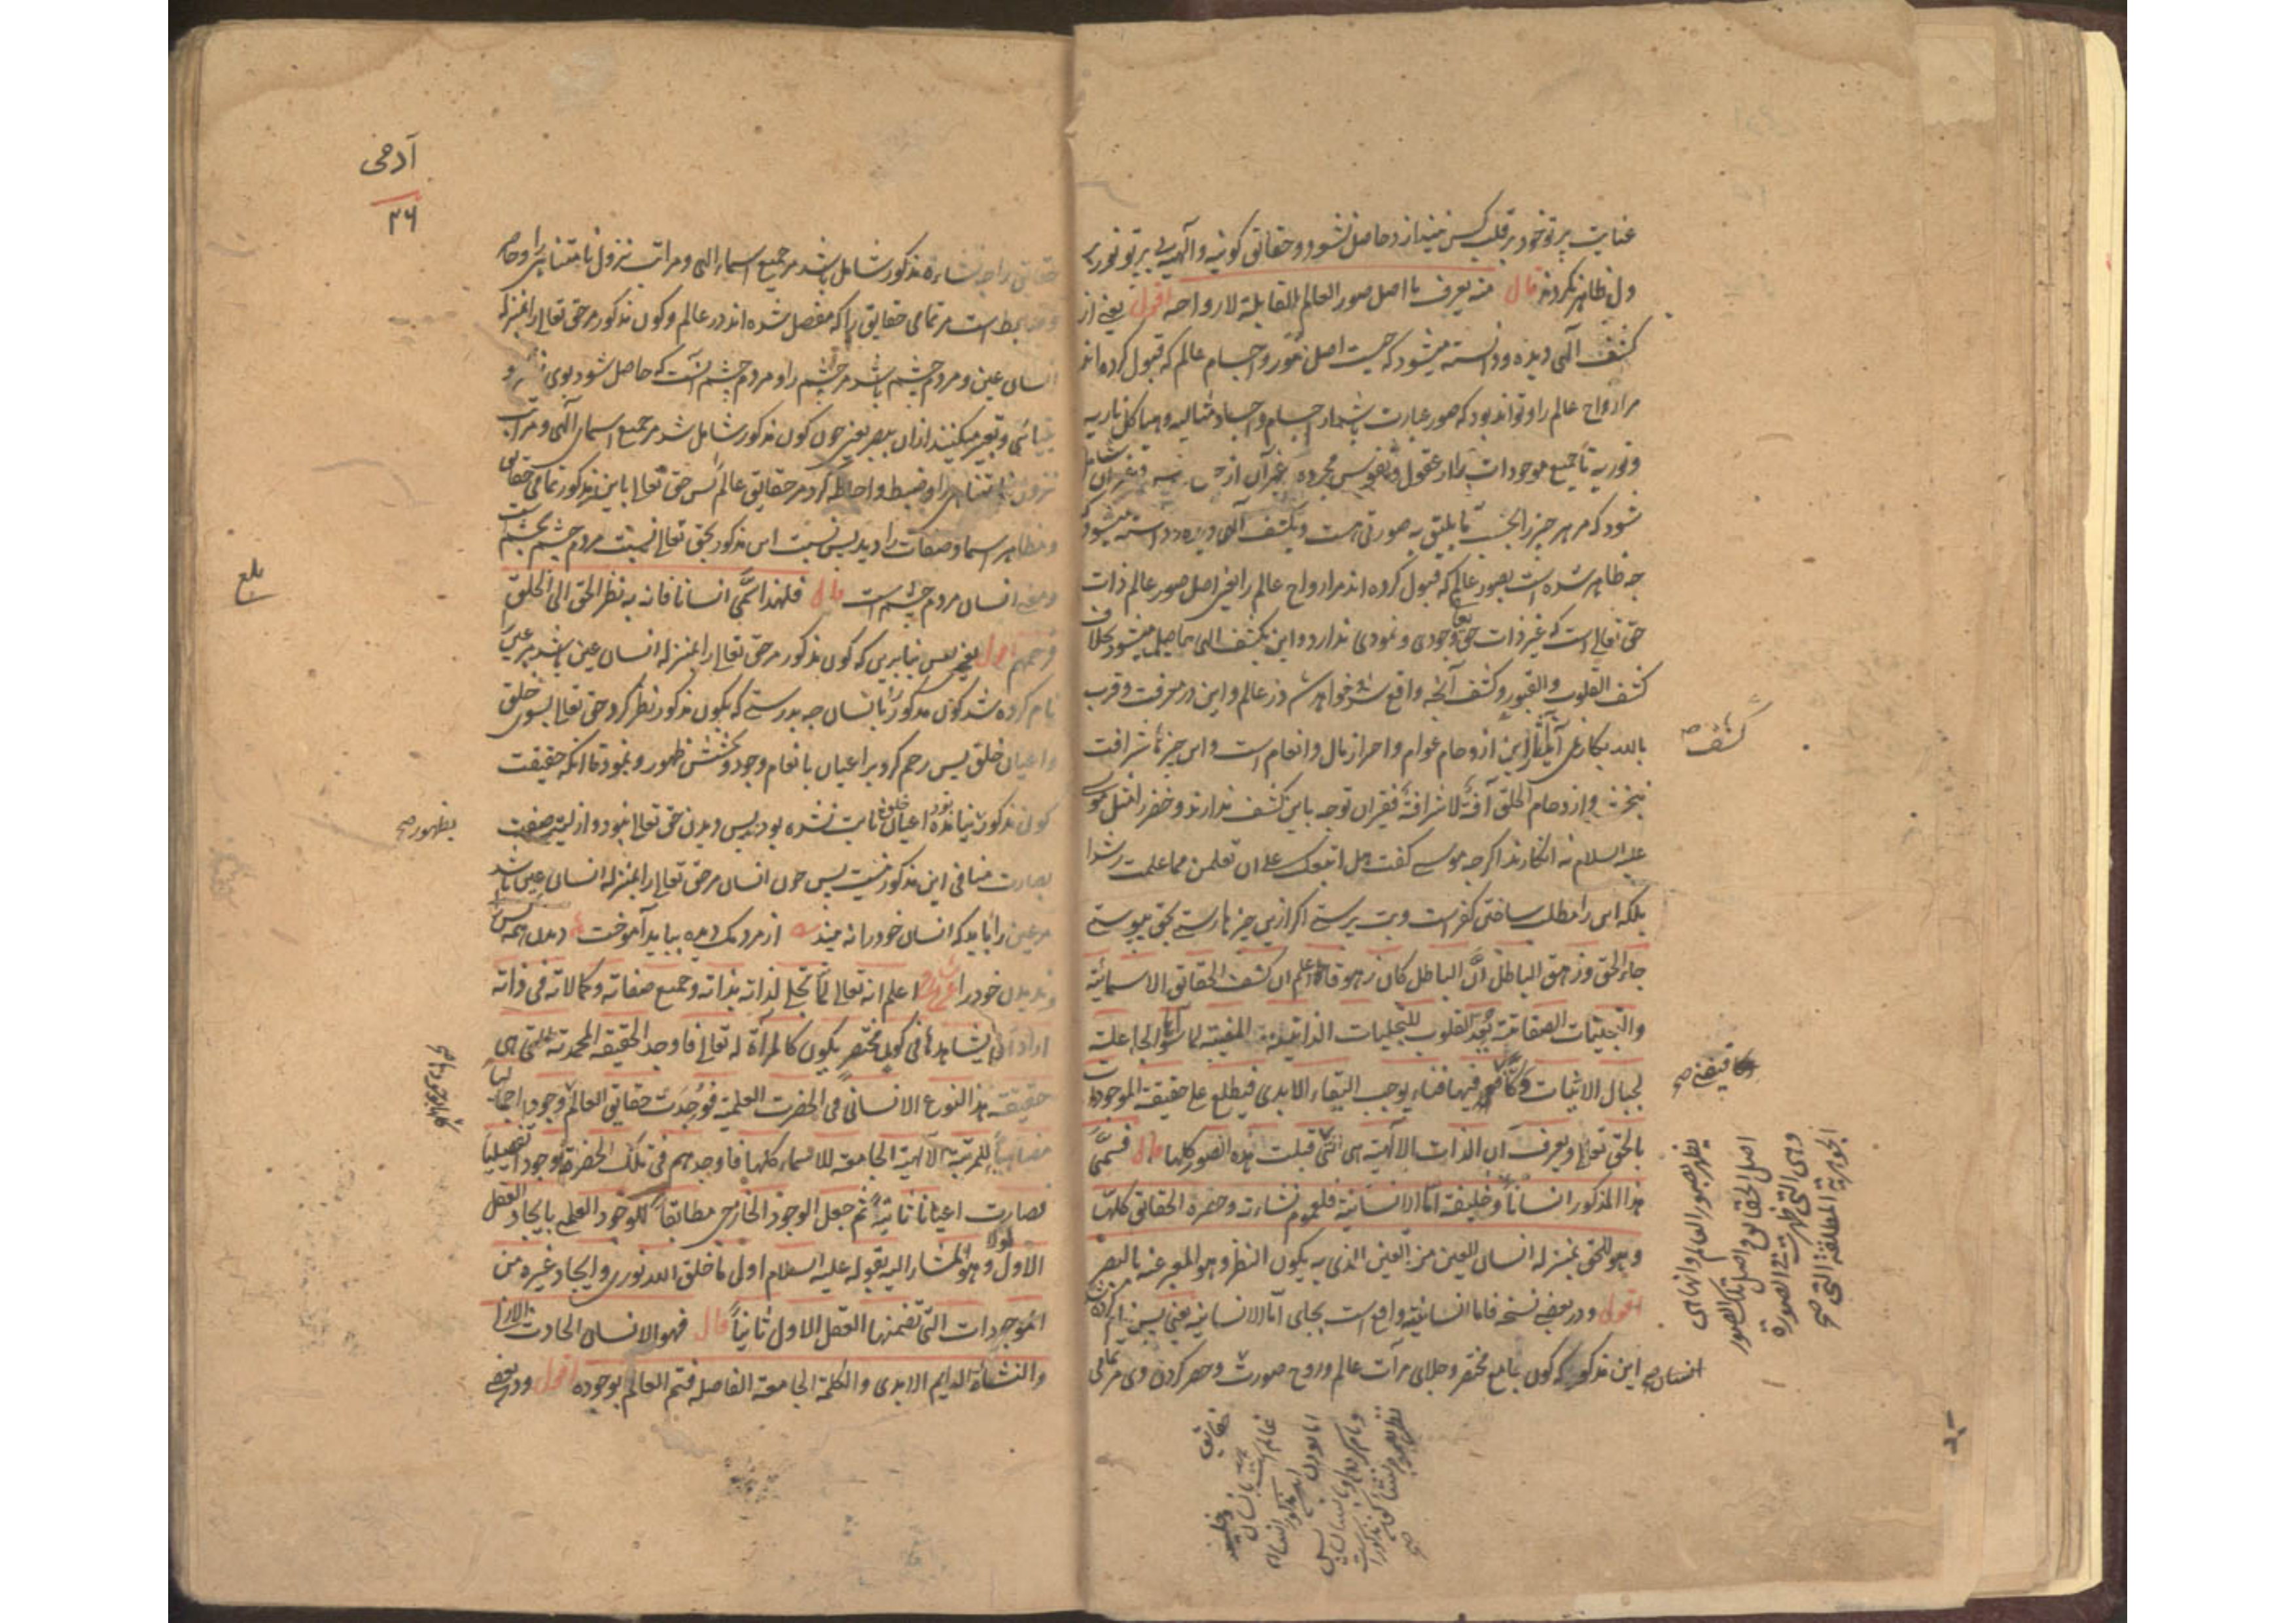 عنایت پرتو خود بر قلب کس نیندازد حاصل نشود و حقائق کونیه و آلهیه بی پرتو نور
ول ظاهر نکردند قال منه یعرف ما اصل صور العالم القابلة لارواحه اقول یعنی از
کشف آلهی دیده و دانسته میشود که چیست اصل صور و اجسام عالم که قبول کرده اند
مر ارواح عالم را و تواند بود که صور عبارت باشد از اجسام و اجساد مثالیه و هیاکل ناریه
و نوریه تا جمیع موجودات را از عقول و نفوس مجرده و غیر آن
شود که مر هر چیز را بحسب ما یلیق به صورتی است و بکشف آلهی دیده و دانسته میشود
چه ظاهر شده است بصور عالم که قبول کرده اند مر ارواح عالم را یعنی اصل صور عالم ذات
حق تعالی است که غیر ذات حق تعالی وجودی و نمودی ندارد و این بکشف الهی حاصل میشود بخلاف
کشف القلوب و القبور و کشف آنچه واقع شد و خواهد شد در عالم و این در معرفت و قرب
بالله بکار نمی آید از دحام عوام و احراز مال و انعام است و این چیز تا شرافت
نبخشد و ازدحام الخلق آفة لا شرافة فقیران توجه باین کشف ندارند و خضر را مثل موسی
علیه السلام نه انکارند اگرچه موسی گفت هل اتبعک علی ان تعلمن مما علمت رشدا
بلکه این را مطلب ساختن کفر است و بت پرستی اگر ازین چیزها رستی بحق پیوستی
جاء الحق و زهق الباطل انّ الباطل کان زهوقا اعلم ان کشف الحقائق الاسمائیة
و التجلیات الصفاتیة یُعِدّ القلوب للتجلیات الذاتیة المفنیة لما سواه الجاعلة
لجبال الانیات دکّا فیها فناء یوجب البقاء الابدی فیطلع علی حقیقة الموجودات
بالحق تعالی و یعرف ان الذات الالهیة هی التی قبلت هذه الصور کلها قال فسمّی
هذا المذکور انساناً و خلیفة امّا الانسانیة فلعموم نشأته و حصره الحقائق کلها
و هو للحق بمنزله انسان العین من العین الذی به یکون النظر و هو المعبر عنه بالبصر
اقول و در بعضی نسخه فاما انسانیته واقع است بجای امّا الانسانیة یعنی پس نام کرده
این مذکور که کون جامع مختصر و جلای مرآت عالم و روح صورت و حصر کردن وی مر تمامی
انسان صح
کشف صح
فیفنی صح
یظهر بصور العالم و انها هی
اصل الحقائق و اصل تلک الصور
و هی التی ظهرت فی الصورة
الجوهریة المطلقة التی صح
آدمی
۲۶
حقائق را چه نشاءه مذکور شامل باشد مر جمیع اسماء الهی و مراتب نزول نامتناهی را و حاصر
و ضابط است مر تمامی حقایق را که مفصل شده اند در عالم و کون مذکور مر حق تعالی را بمنزله
انسان عین و مردم چشم باشد مر چشم را و مردم چشم آنست که حاصل شود بوی نظر و
بینائی و تعبیر میکنند ازان ببصر یعنی چون کون مذکور شامل شد مر جمیع اسمای آلهی و مراتب
نزول نامتناهی را و ضبط و احاطه کرد مر حقایق عالم پس حق تعالی باین مذکور تمامی حقایق
و مظاهر اسما و صفات را دید پس نسبت این مذکور بحق تعالی نسبت مردم چشم بچشم است
و معنی انسان مردم چشم است قال فلهذا سُمّی انسانا فانه به نظر الحق الی الخلق
فرحمهم اقول یعنی پس بنابرین که کون مذکور مر حق تعالی را بمنزله انسان عین باشد مر عین
نام کرده شد کون مذکور را بانسان چه بدرستی که بکون مذکور نظر کرد حق تعالی بسوی خلق
و اعیان خلق پس رحم کرد بر اعیان بانعام وجود و بخشش ظهور و نمود تا آنکه حقیقت
کون مذکور نیامده بود اعیان خلق ثابت نشده بودند پس دیدن حق تعالی نبود و ازلیت صفت
بصارت منافی این مذکور نیست پس چون انسان مر حق تعالی را بمنزله انسان عین باشد
مر عین را باید که انسان خود را نه بیند از مردمک دیده بباید آموخت دیدن همه کس
و ندیدن خود را اعلم انه تعالی لمّا تجلی لذاته بذاته و جمیع صفاته و کمالاته فی ذاته
اراد ان یشاهدها فی کون مختصر یکون کالمرآة له تعالی فاوجد الحقیقة المحمدیة التی هی
حقیقة هذا النوع الانسانی فی الحضرت العلمیة فوُجدت حقائق العالم بوجودها اجمالیا
مضاهیاً للمرتبة الآلهیة الجامعة للاسماء کلها فاوجدهم فی تلک الحضرة وجودا تفصیلیا
فصارت اعیانا ثابتة ثم جعل الوجود الخارجی مطابقاً للوجود العلمی بایجاد العقل
الاول و هو المشار الیه بقوله علیه السلام اول ما خلق الله نوری و ایجاد غیره من
الموجودات التی تضمنها العقل الاول ثانیاً قال فهو الانسان الحادث الازلی
و النشأة الدایم الابدی و الکلمة الجامعة الفاصلة فتم العالم بوجوده اقول و در بعضی
بلغ
بظهور صح